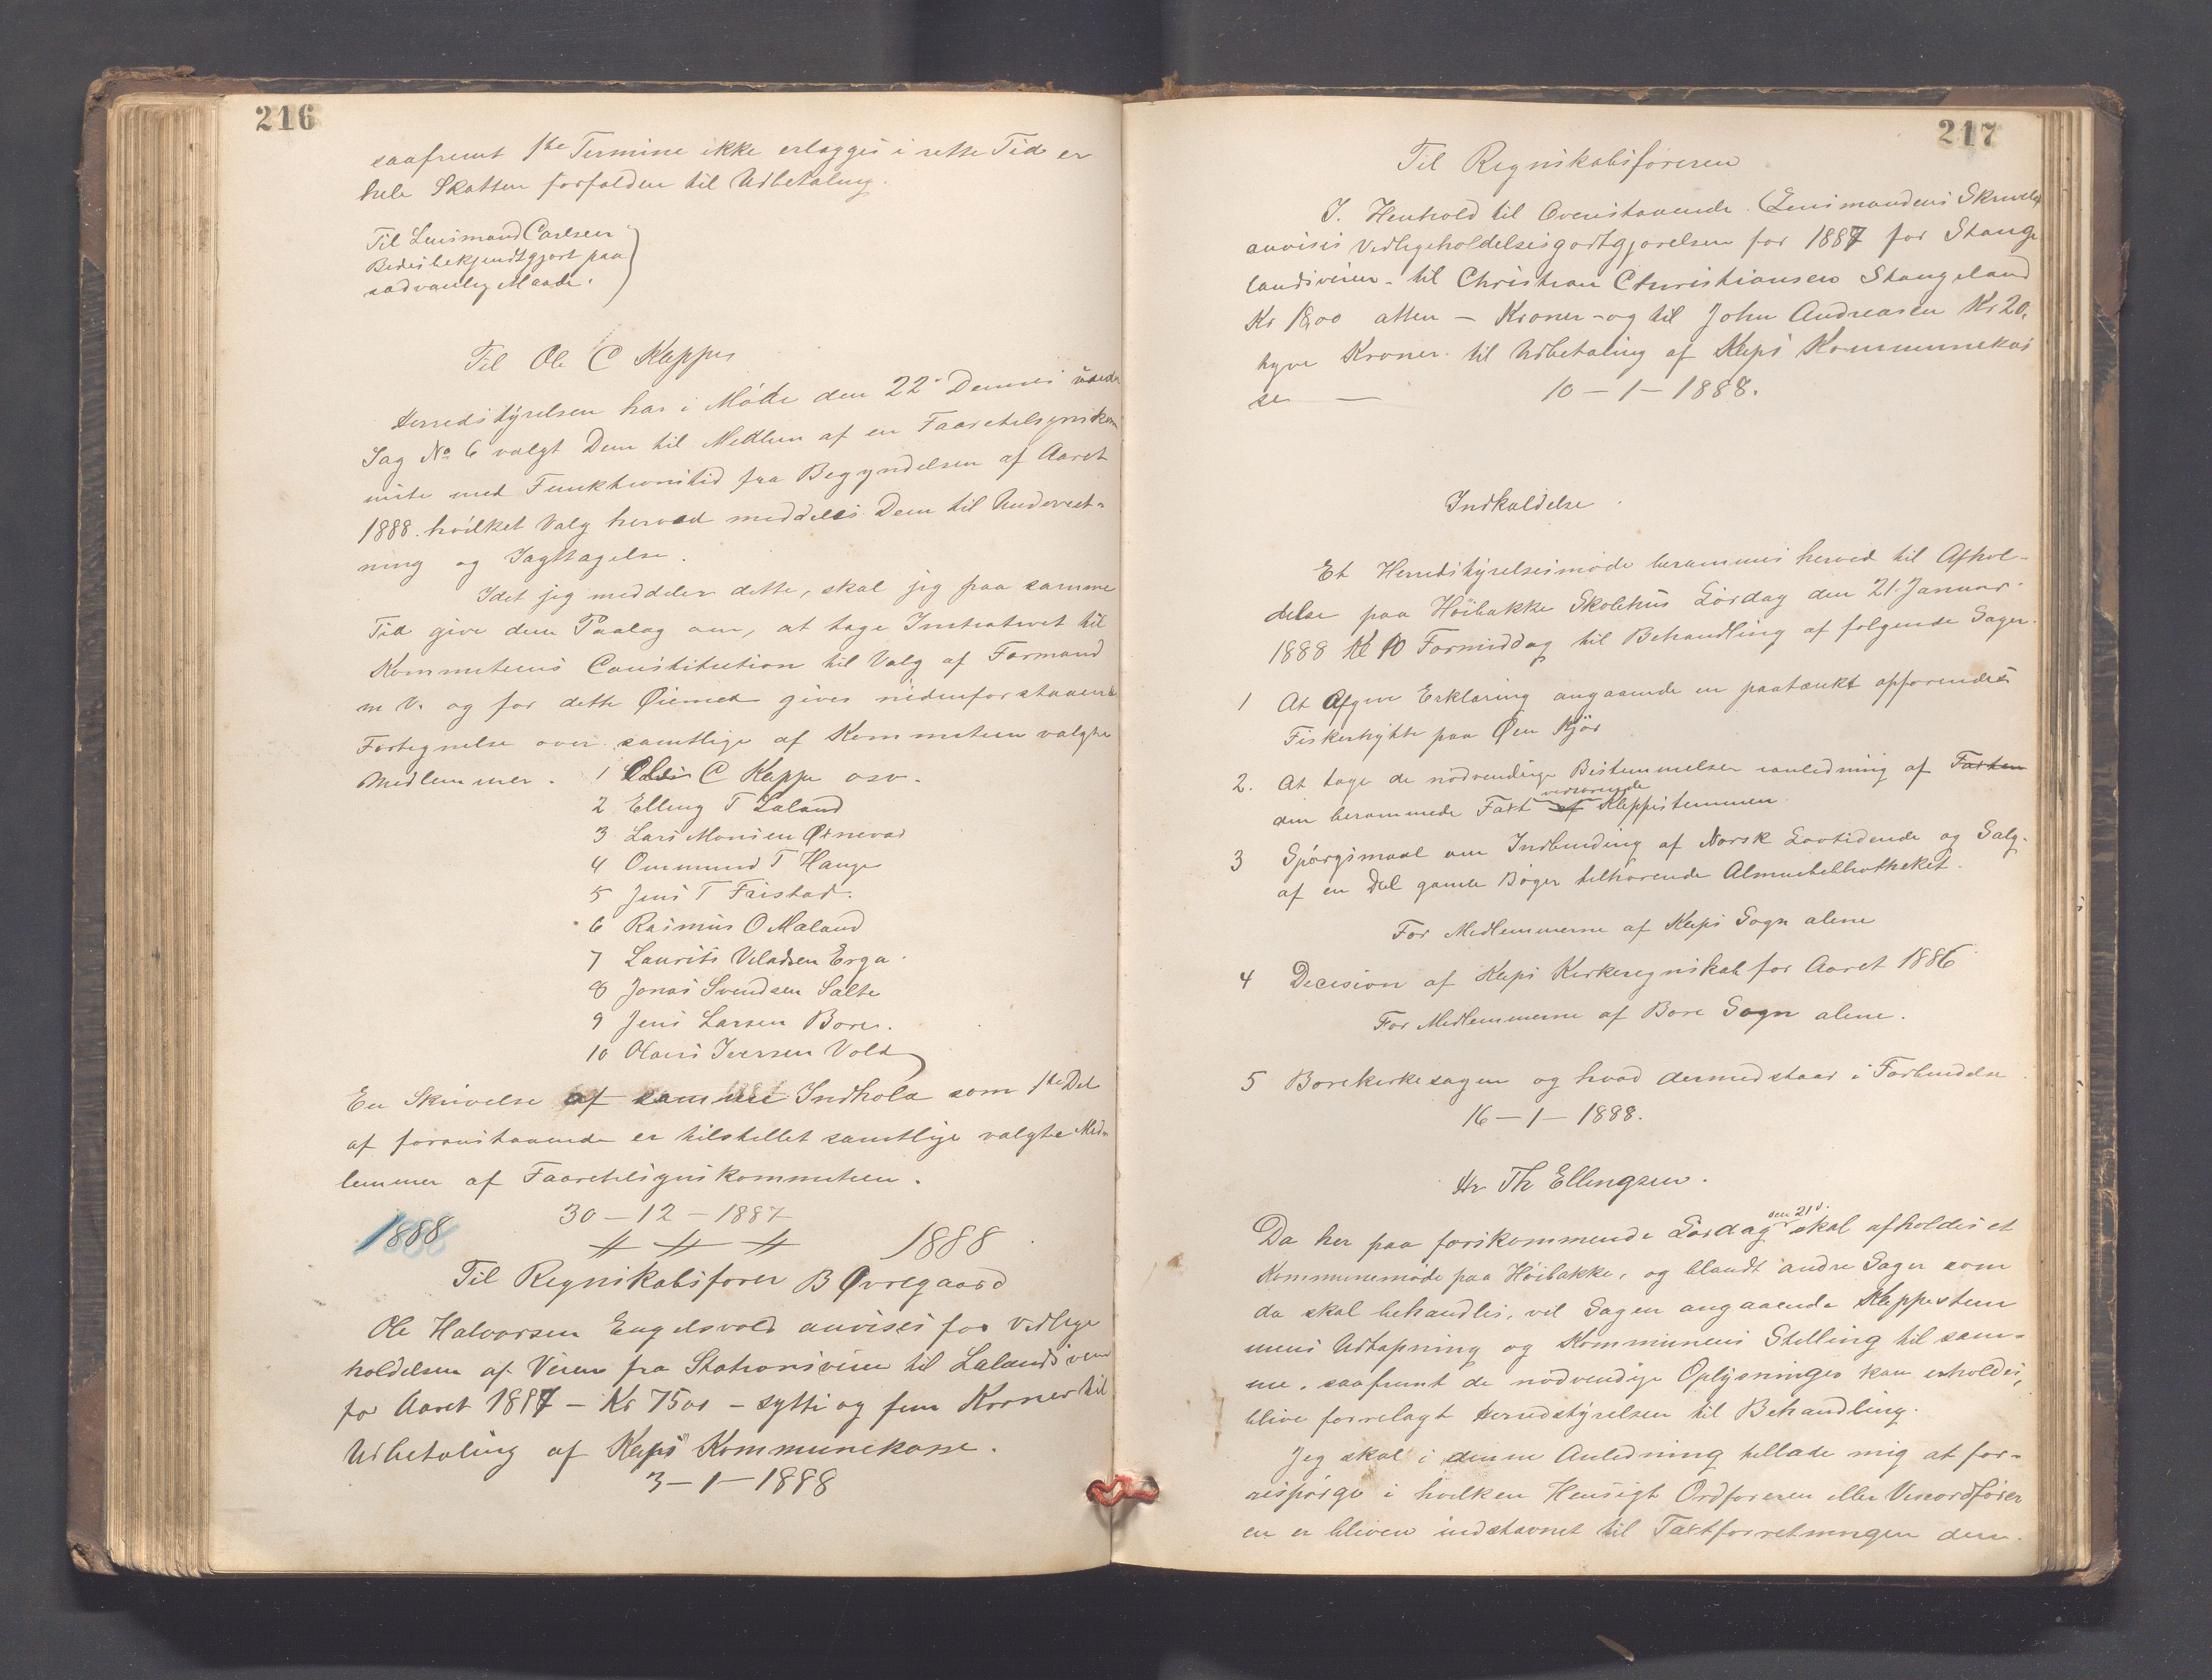 216
saafremt 1ste Termine ikke erlægges i rette Tid er
hele Skatten forfalden til Udbetaling.
Til Lensmand Carlsen
Bedes bekjendtgjort paa
sadvanlig Maade.
Til Ole C Kleppe
Herredstyrelsen har i Møde den 22de Dennes under
Sag No 6 valgt Dem til Medlem af en Faaretilsynskom
mite med Funktionstid fra Begyndelsen af Aaret
1888. hvilket Valg herved meddeles Dem til Underret-
ning og Iagttagelse.
Idet jeg meddeler dette, skal jeg paa samme
Tid give dem Paalæg om, at tage Initiativet til
Kommiteens Constitution til Valg af Formand
m V. og for dette Øiemed gives nedenforstaaende
Fortegnelse over samtlige af Kommiteen valgte
Medlemmer. 1 Ole C Kleppe osv.
2 Elling T Laland
3 Lars Monsen Øxnevad
4 Ommund T Hauge
5 Jens T Friestad.
6 Rasmus O Maland
7 Laurits Veladsen Erga.
8 Jonas Svendsen Salte
9 Jens Larsen Bore.
10 Olaus Iversen Vold
En Skrivelse af samme Indhold som 1ste Del
af foranstaaende er tilstillet samtlige valgte Med-
lemmer af Faaretilsynskommiteen.
30-12-1887
1888 1888
Til Regnskabsfører B Øvregaard
Ole Halvorsen Engelsvold anvises for Vedlige
holdelsen af Veien fra Stationsveien til Lalandsveien
for Aaret 1887 - Kr 7500 - sytti og fem Kroner til
Udbetaling af Kleps Kommunekasse.
3-1-1888
217
Til Regnskabsføreren
I. Henhold til Ovenstaaende (Lensmandens Skrivelse)
anvises Vedligeholdelsesgodtgjørelsen for 1887 for Stange
landsveien - til Christian Christiansen Stangeland
Kr 18,00 atten - Kroner - og til John Andreasen Kr 20,
tyve Kroner. til Udbetaling af Kleps Kommunekas
se — 10-1-1888.
Indkaldelse.
Et Herredstyrelsesmøde berammes herved til Afhol-
delse paa Høibakke Skolehus Lørdag den 21. Januar
1888 Kl 10 Formiddag til Behandling af følgende Sager.
1 At Afgive Erklæring angaaende en paatænkt opførendes
Fiskerhytte paa Øen Kjør
2. At tage de nødvendige Bistemmelser i anledning af Taxten
den berammede Taxt af vedrørende Kleppstemmen.
3 Spørgsmaal om Indbinding af Norsk Lovtidende og Salg.
af en Del gamle Bøger tilhørende Almuebibliotheket.
For Medlemmerne af Kleps Sogn alene
4 Decision af Kleps Kirkeregnskab for Aaret 1886
For Medlemmerne af Bore Sogn alene.
5 Borekirkesagen og hvad dermed staar i Forbindelse
16-1-1888.
Hr Th Ellingsen.
Da her paa førskommende Lørdag den 21d. skal afholdes et
Kommunemøde paa Høibakke, og blandt andre Sager som
da skal behandles, vil Sagen angaaende Kleppestem
mens Udtapning og Kommunens Stilling til sam-
me. saafremt de nødvendige Oplysninger kan erholdes,
blive forrelagt Herredstyrelsen til Behandling.
Jeg skal i denne Anledning tillade mig at for-
espørge i hvilken Hensigt Ordføreren eller Viceordfører
en er bleven indstævnet til Taxtforretningen den.